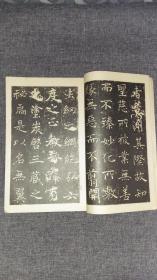 者罕聞其際故知
聖慈所被業無善
而不臻妙化所敷
緣無惡而不翦開
法網之綱紀弘六
度之正教拯羣有
之塗炭啓三藏之
秘扃是以名無翼